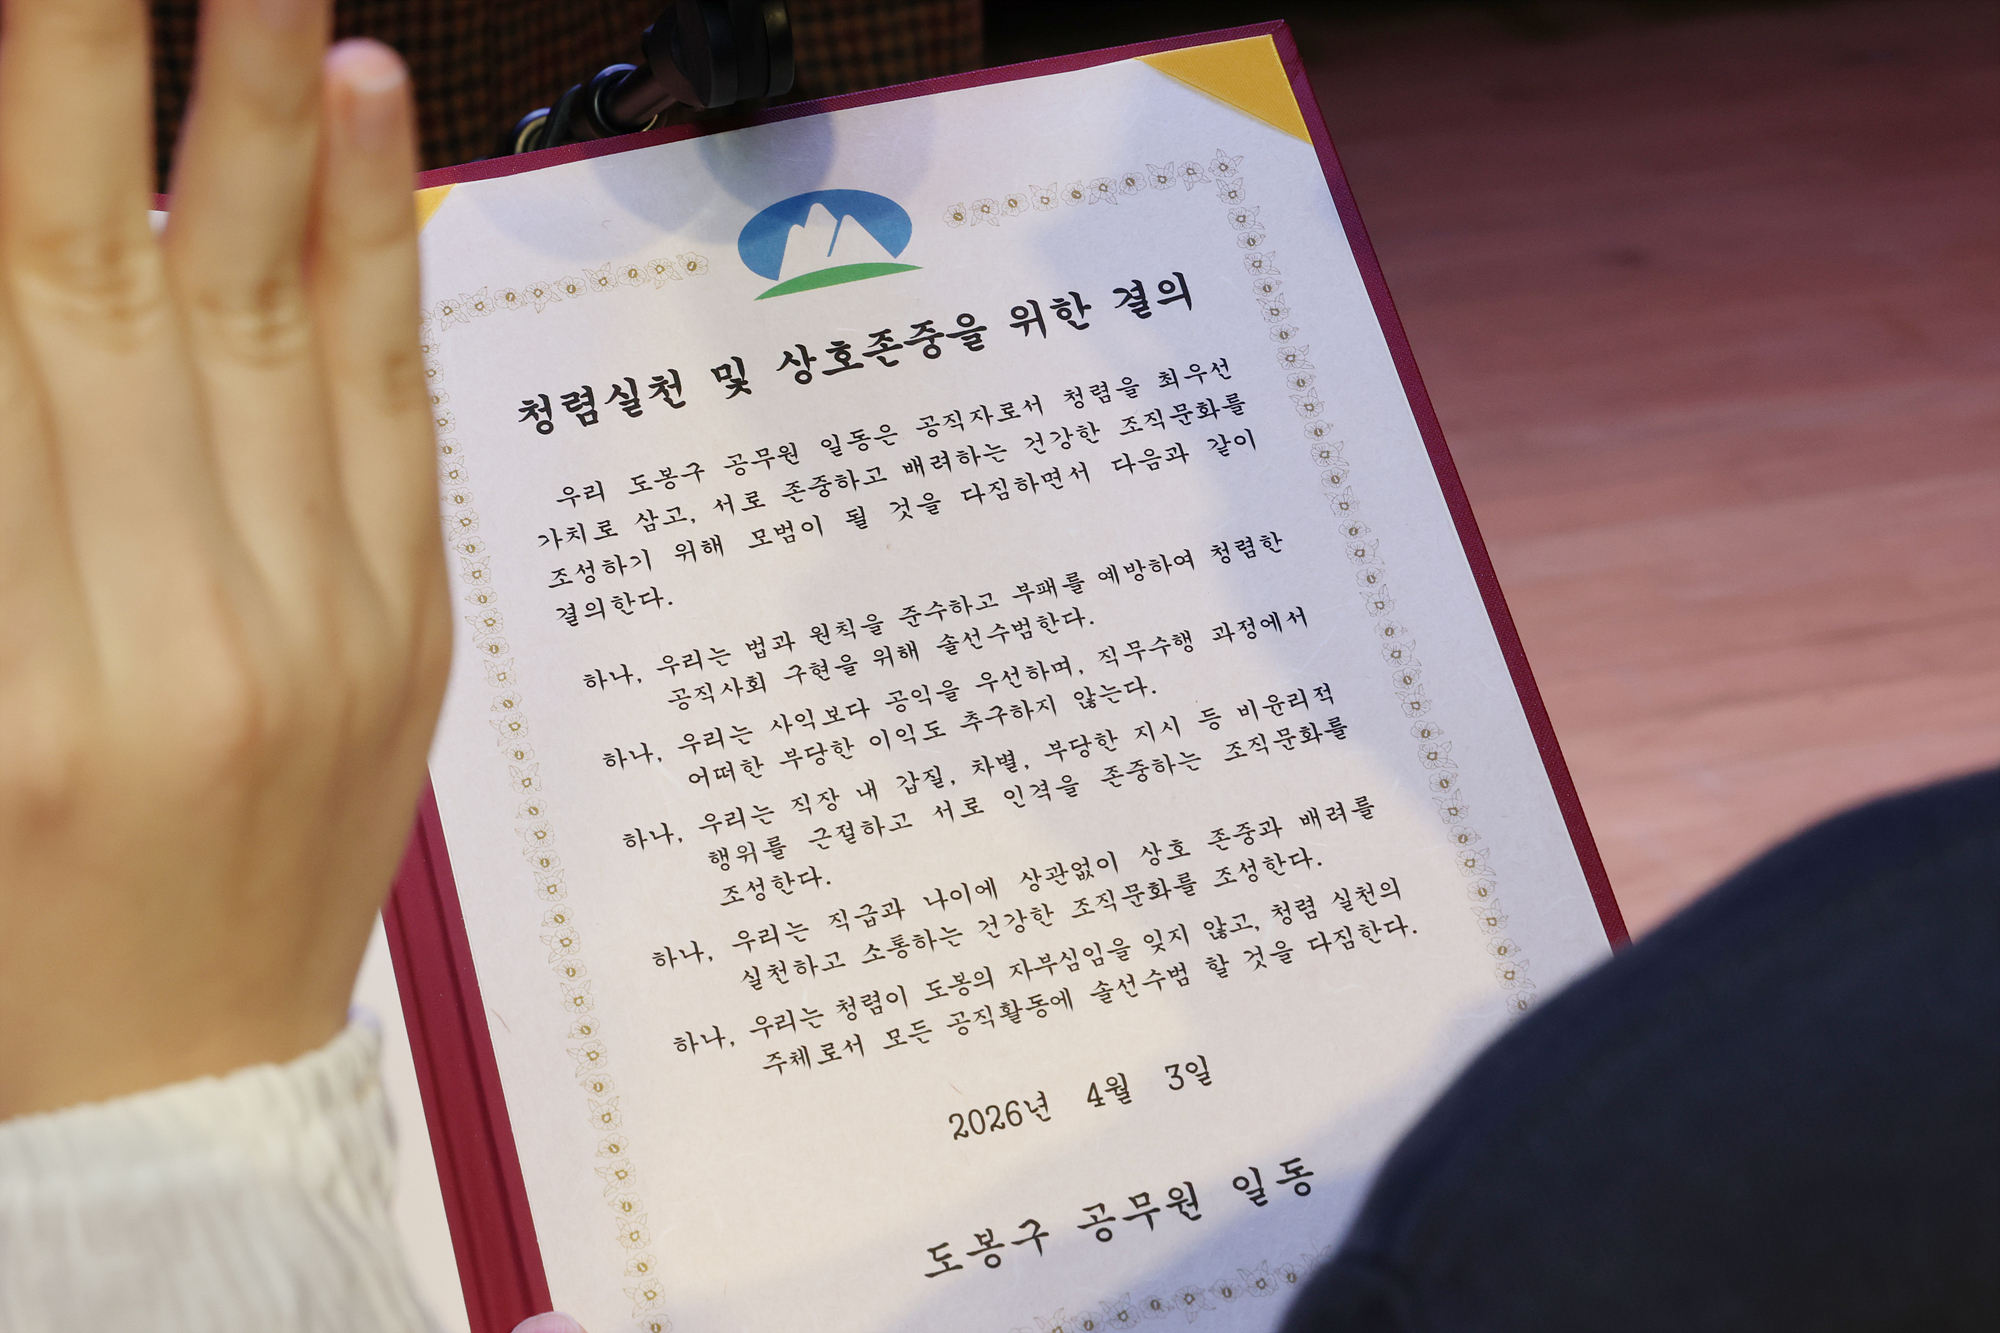 청렴실천 및 상호존중을 위한 결의
우리 도봉구 공무원 일동은 공직자로서 청렴을 최우선
가치로 삼고, 서로 존중하고 배려하는 건강한 조직문화를
조성하기 위해 모범이 될 것을 다짐하면서 다음과 같이
결의한다.
하나, 우리는 법과 원칙을 준수하고 부패를 예방하여 청렴한
공직사회 구현을 위해 솔선수범한다.
하나, 우리는 사익보다 공익을 우선하며, 직무수행 과정에서
어떠한 부당한 이익도 추구하지 않는다.
하나, 우리는 직장 내 갑질, 차별, 부당한 지시 등 비윤리적
행위를 근절하고 서로 인격을 존중하는 조직문화를
조성한다.
하나, 우리는 직급과 나이에 상관없이 상호 존중과 배려를
실천하고 소통하는 건강한 조직문화를 조성한다.
하나, 우리는 청렴이 도봉의 자부심임을 잊지 않고, 청렴 실천의
주체로서 모든 공직활동에 솔선수범 할 것을 다짐한다.
2026년 4월 3일
도봉구 공무원 일동